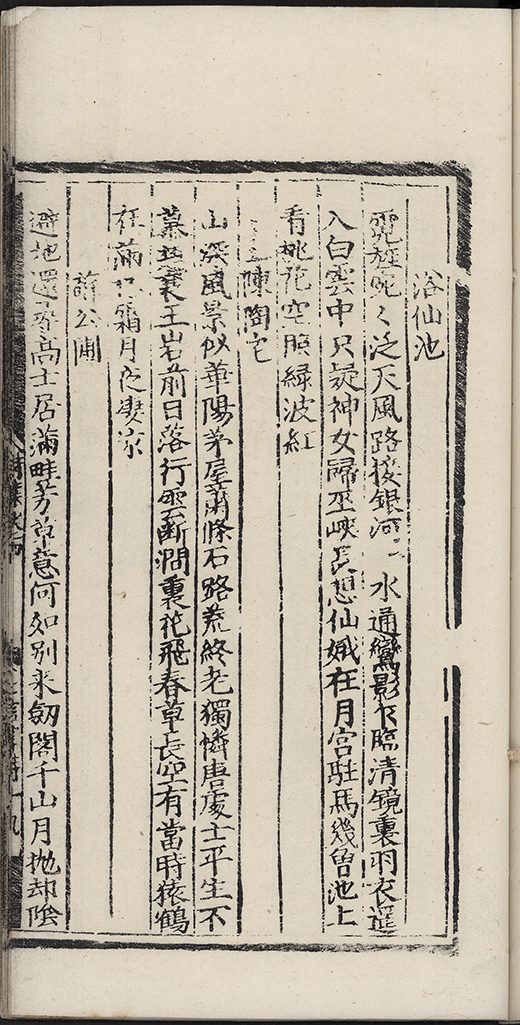 浴仙池
霓旌宛々泛天風路接銀河一水通鸞影下臨清鏡裏羽衣遥
入白雲中只疑神女歸巫峽長想仙娥在月宮駐馬幾曾池上
看桃花空照緑波紅
陳陶宅
山深風景似華陽茅屋蕭條石路荒終老獨憐唐處士平生不
王岩前日落行雲断澗裏花飛春草長空有當時猿鶴
在滿霜月夜凄凉
蘇公圃
避地還尋高士居滿畦芳草意何如别来劒閣千山月抛却陰